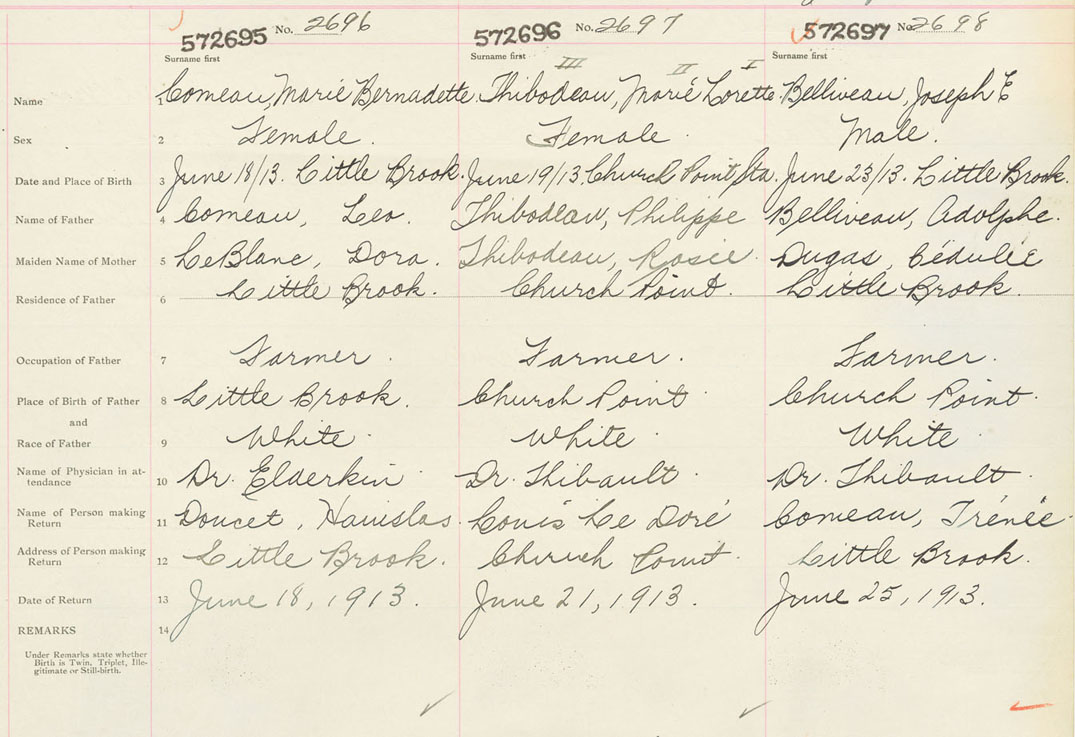 572695 No. 2696 572696 No. 2697 572697 No. 2698
Surname first Surname first Surname first
III II I
Name 1 Comeau, Marie Bernadette. Thibodeau, Marie Lorette. Belliveau, Joseph E
Sex 2 Female. Female. Male.
Date and Place of Birth 3 June 18/13. Little Brook. June 19/13. Church Point Sta. June 23/13. Little Brook.
Name of Father 4 Comeau, Leo. Thibodeau, Philippe Belliveau, Adolphe.
Maiden Name of Mother 5 LeBlanc, Dora. Thibodeau, Rosie. Dugas, Cédulée
Residence of Father 6 Little Brook. Church Point. Little Brook.
Occupation of Father 7 Farmer. Farmer. Farmer.
Place of Birth of Father 8 Little Brook. Church Point. Church Point.
and
Race of Father 9 White. White. White
Name of Physician in at-
tendance 10 Dr. Elderkin Dr. Thibault. Dr. Thibault.
Name of Person making
Return 11 Doucet, Louis Le Doré Comeau,
Address of Person making
Return 12 Little Brook. Church Point. Little Brook.
Date of Return 13 June 18, 1913. June 21, 1913. June 25, 1913.
REMARKS 14
Under Remarks state whether
Birth is Twin, Triplet, Ille-
gitimate or Still-birth.